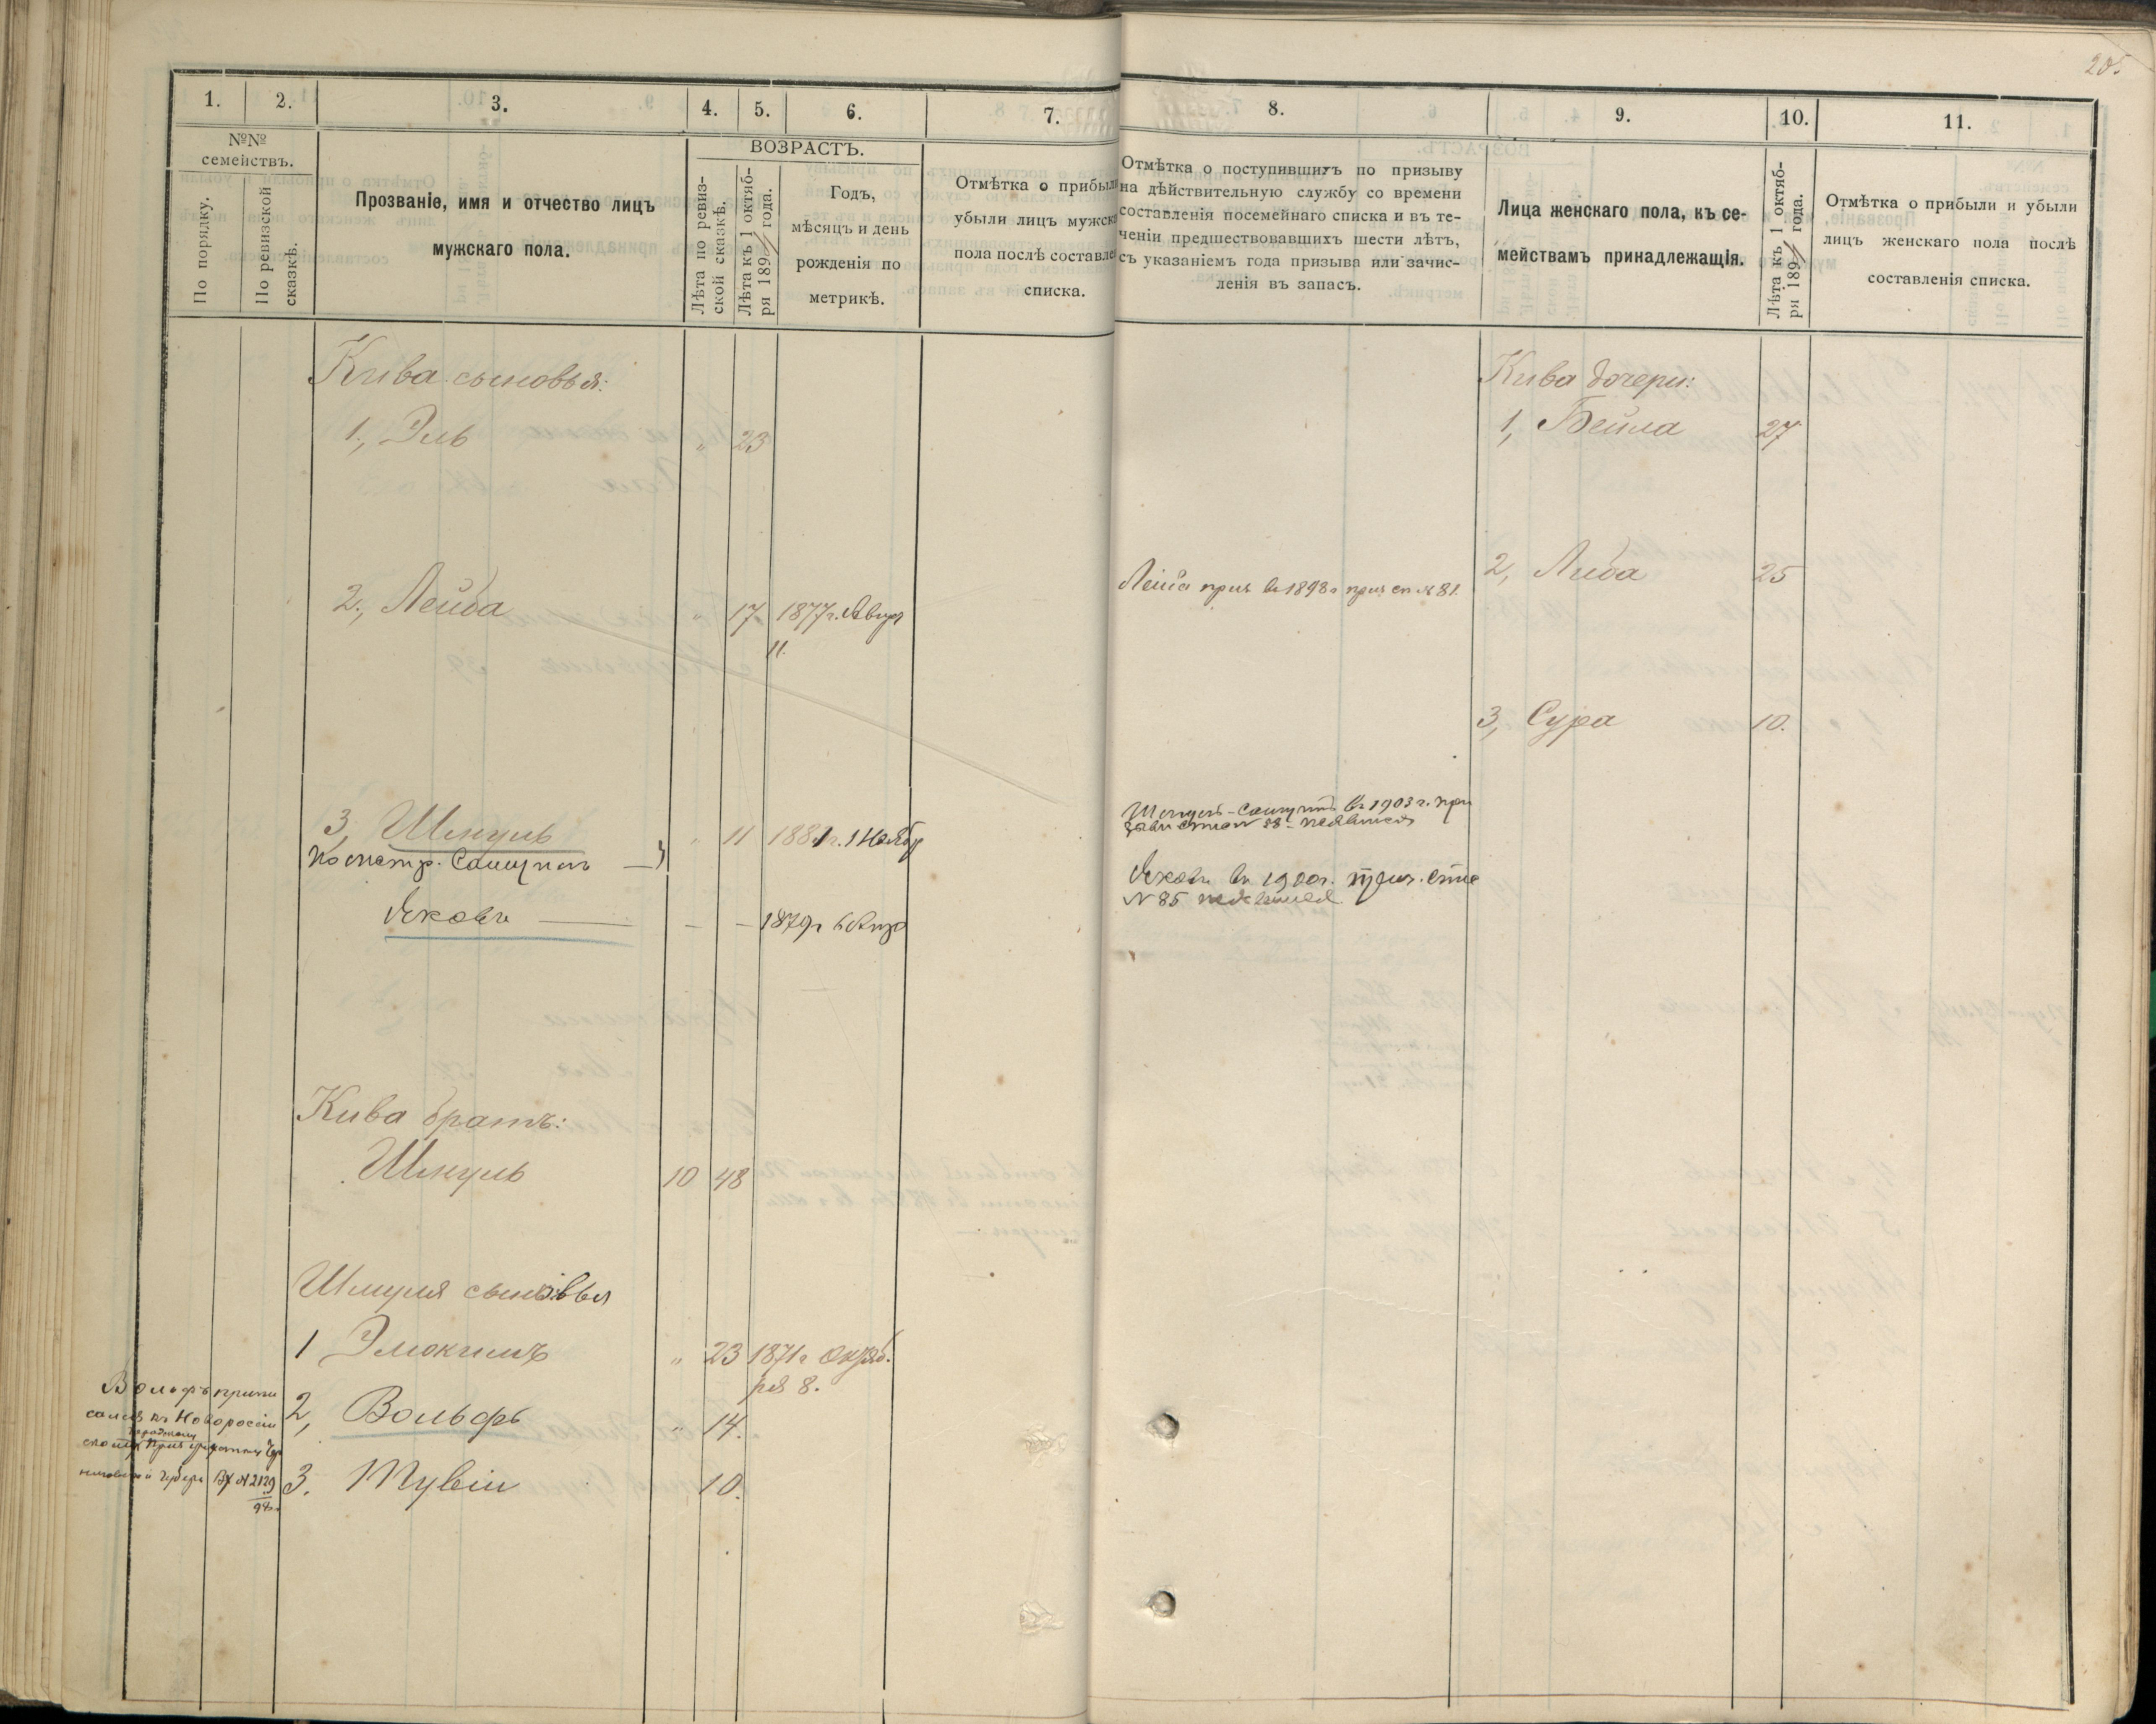 205
1. 2. 3. 4. 5. 6. 7.
№№
семействъ.
По порядку.
По ревизской
сказкѣ.
Прозваніе, имя и отчество лицъ
мужскаго пола.
ВОЗРАСТЪ.
Лѣта по ревиз-
ской сказкѣ.
Лѣта къ 1 октяб-
ря 189 года.
Годъ,
мѣсяцъ и день
рожденія по
метрикѣ.
Отмѣтка о прибыли
убыли лицъ мужск
пола послѣ составле
списка.
Кива сыновья:
1., Эль " 23
2., Лейба " 17 1877 г.
11.
3, Шмуль " 11 1881 г. 1 Ноябр
по метр.
Яковъ — - - 1879 г 6
Кива братъ:
Шмуль 10 48
Шмуля сыновья
1 " 23 1871 г Октяб.
ря 8.
2, Вольфъ " 14.
3. Тувіи 10.
Вольфъ припи
сался къ
Вх № 2129
8. 9. 10. 11.
Отмѣтка о поступившихъ по призыву
на дѣйствительную службу со времени
составленія посемейнаго списка и въ те-
ченіи предшествовавшихъ шести лѣтъ,
съ указаніемъ года призыва или зачис-
ленія въ запасъ.
Лица женскаго пола, къ се-
мействамъ принадлежащія.
Лѣта къ 1 октяб-
ря 189 года.
Отмѣтка о прибыли и убыли
лицъ женскаго пола послѣ
составленія списка.
Кива дочери:
1, Бейла 27
2, Либа 25
Лейба приз въ 1898 г приз сп № 81.
3, Сура 10.
въ 1903 г. при
Яковъ въ 1900 г. приз.
№ 85 неявился